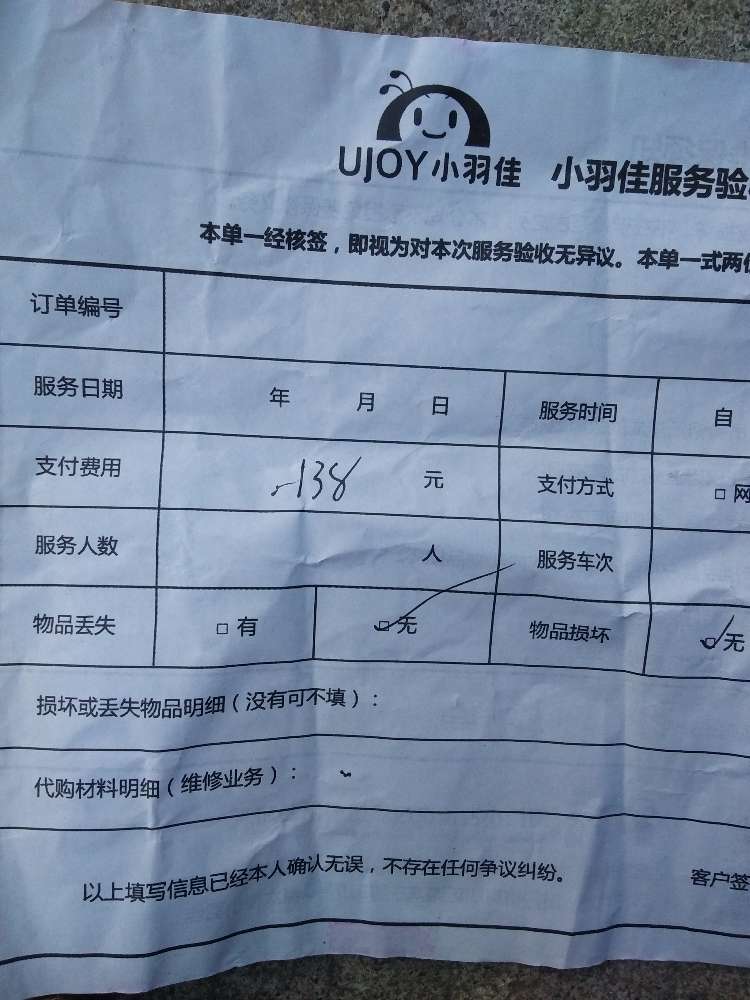 UJOY小羽佳 小羽佳服务验
本单一经核签，即视为对本次服务验收无异议。本单一式两
订单编号
服务日期 年 月 日 服务时间 自
支付费用 138 元 支付方式 □ 网
服务人数 人 服务车次
物品丢失 □ 有 □ 无 物品损坏 □ 无
损坏或丢失物品明细（没有可不填）：
代购材料明细（维修业务）：
以上填写信息已经本人确认无误，不存在任何争议纠纷。 客户签